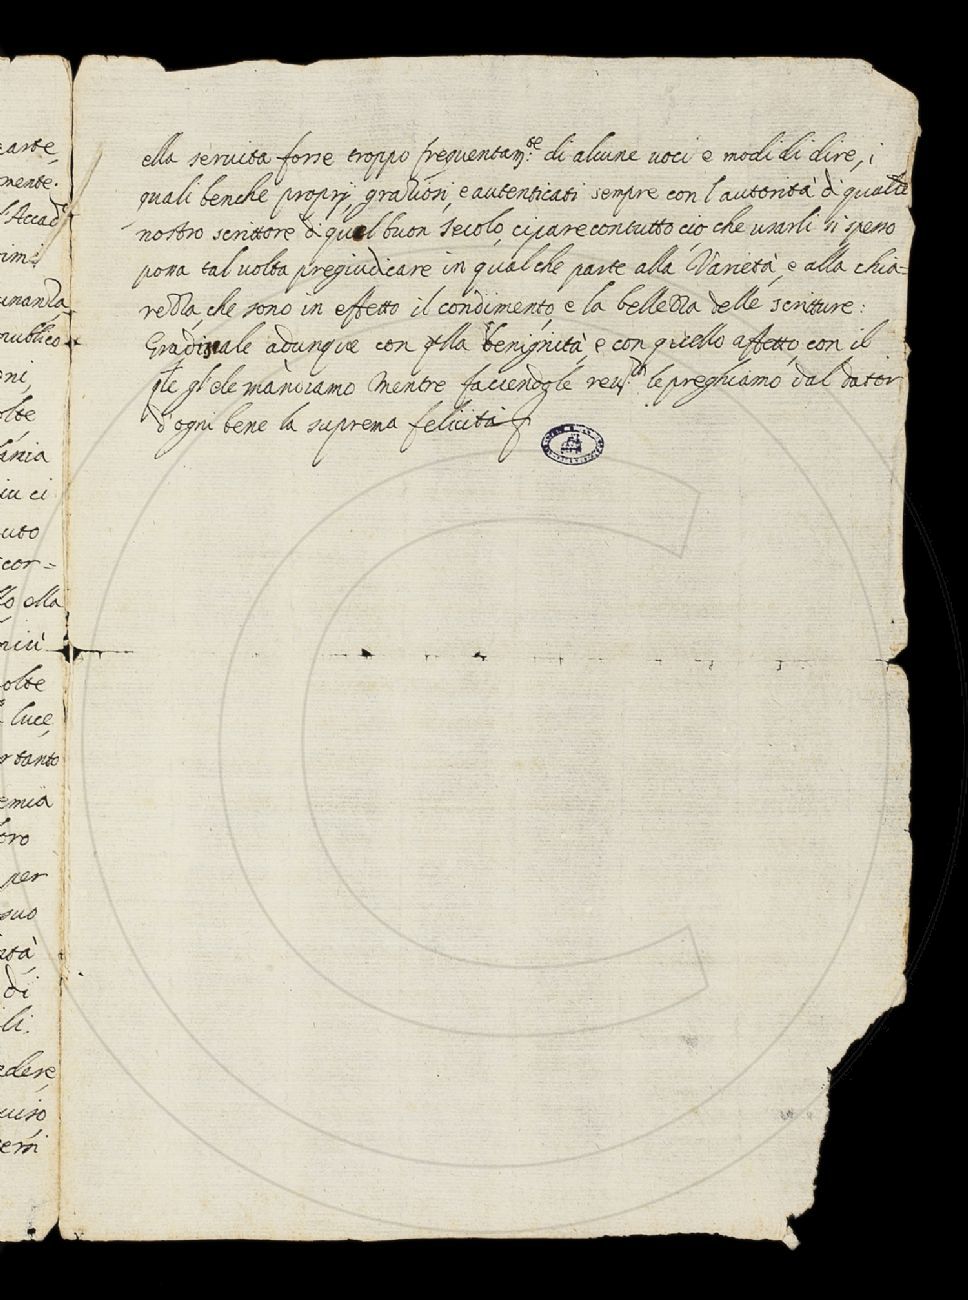 earte,
mente.
l'Accad
rimi
umanza
publico
oni,
olte
lania
iu ci
uto
cor=
lo ella
niù
olte
luce,
r tanto
emia
loro
per
suo
ità,
di
li.
edere,
uiso
erni
ella seruita forse troppo frequentam.te di alcune uoci e modi di dire, i
quali benche proprij, graziosi, e autenticati sempre con l'autorità d'qualche
nostro scrittore d' quel buon secolo, ci pare contutto ciò che usarli sì spesso
possa tal uolta pregiudicare in qualche parte alla Varietà, e alla chia=
rezza, che sono in effetto il condimento, e la bellezza delle scritture:
Gradiscale adunque con qlla benignità e con quello affetto, con il
qle gl'ele mandiamo mentre faciendogle reu.za le preghiamo dal dator
d'ogni bene la suprema felicità